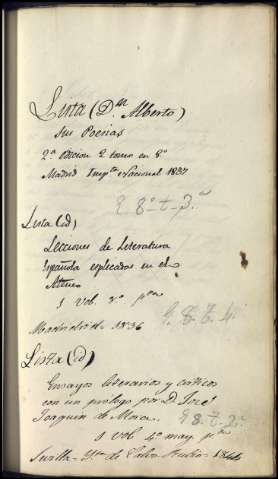 Lista (Dn Alberto)
Sus Poesias
2ª edicion 2 tomos en 8º
Madrid Impta Nacional 1837
E 8º-t-3.
Lista (id)
Lecciones de Literatura
Española esplicadas en el
Ateneo
1 Vol. 8º
Madrid 1836
E. 8. t. 4.
Lista (id)
Ensayos literarios y criticos
con un prologo por D. José
Joaquin de Mora.
8-t-2º
1 Vol 4º may.
Sevilla - 1844